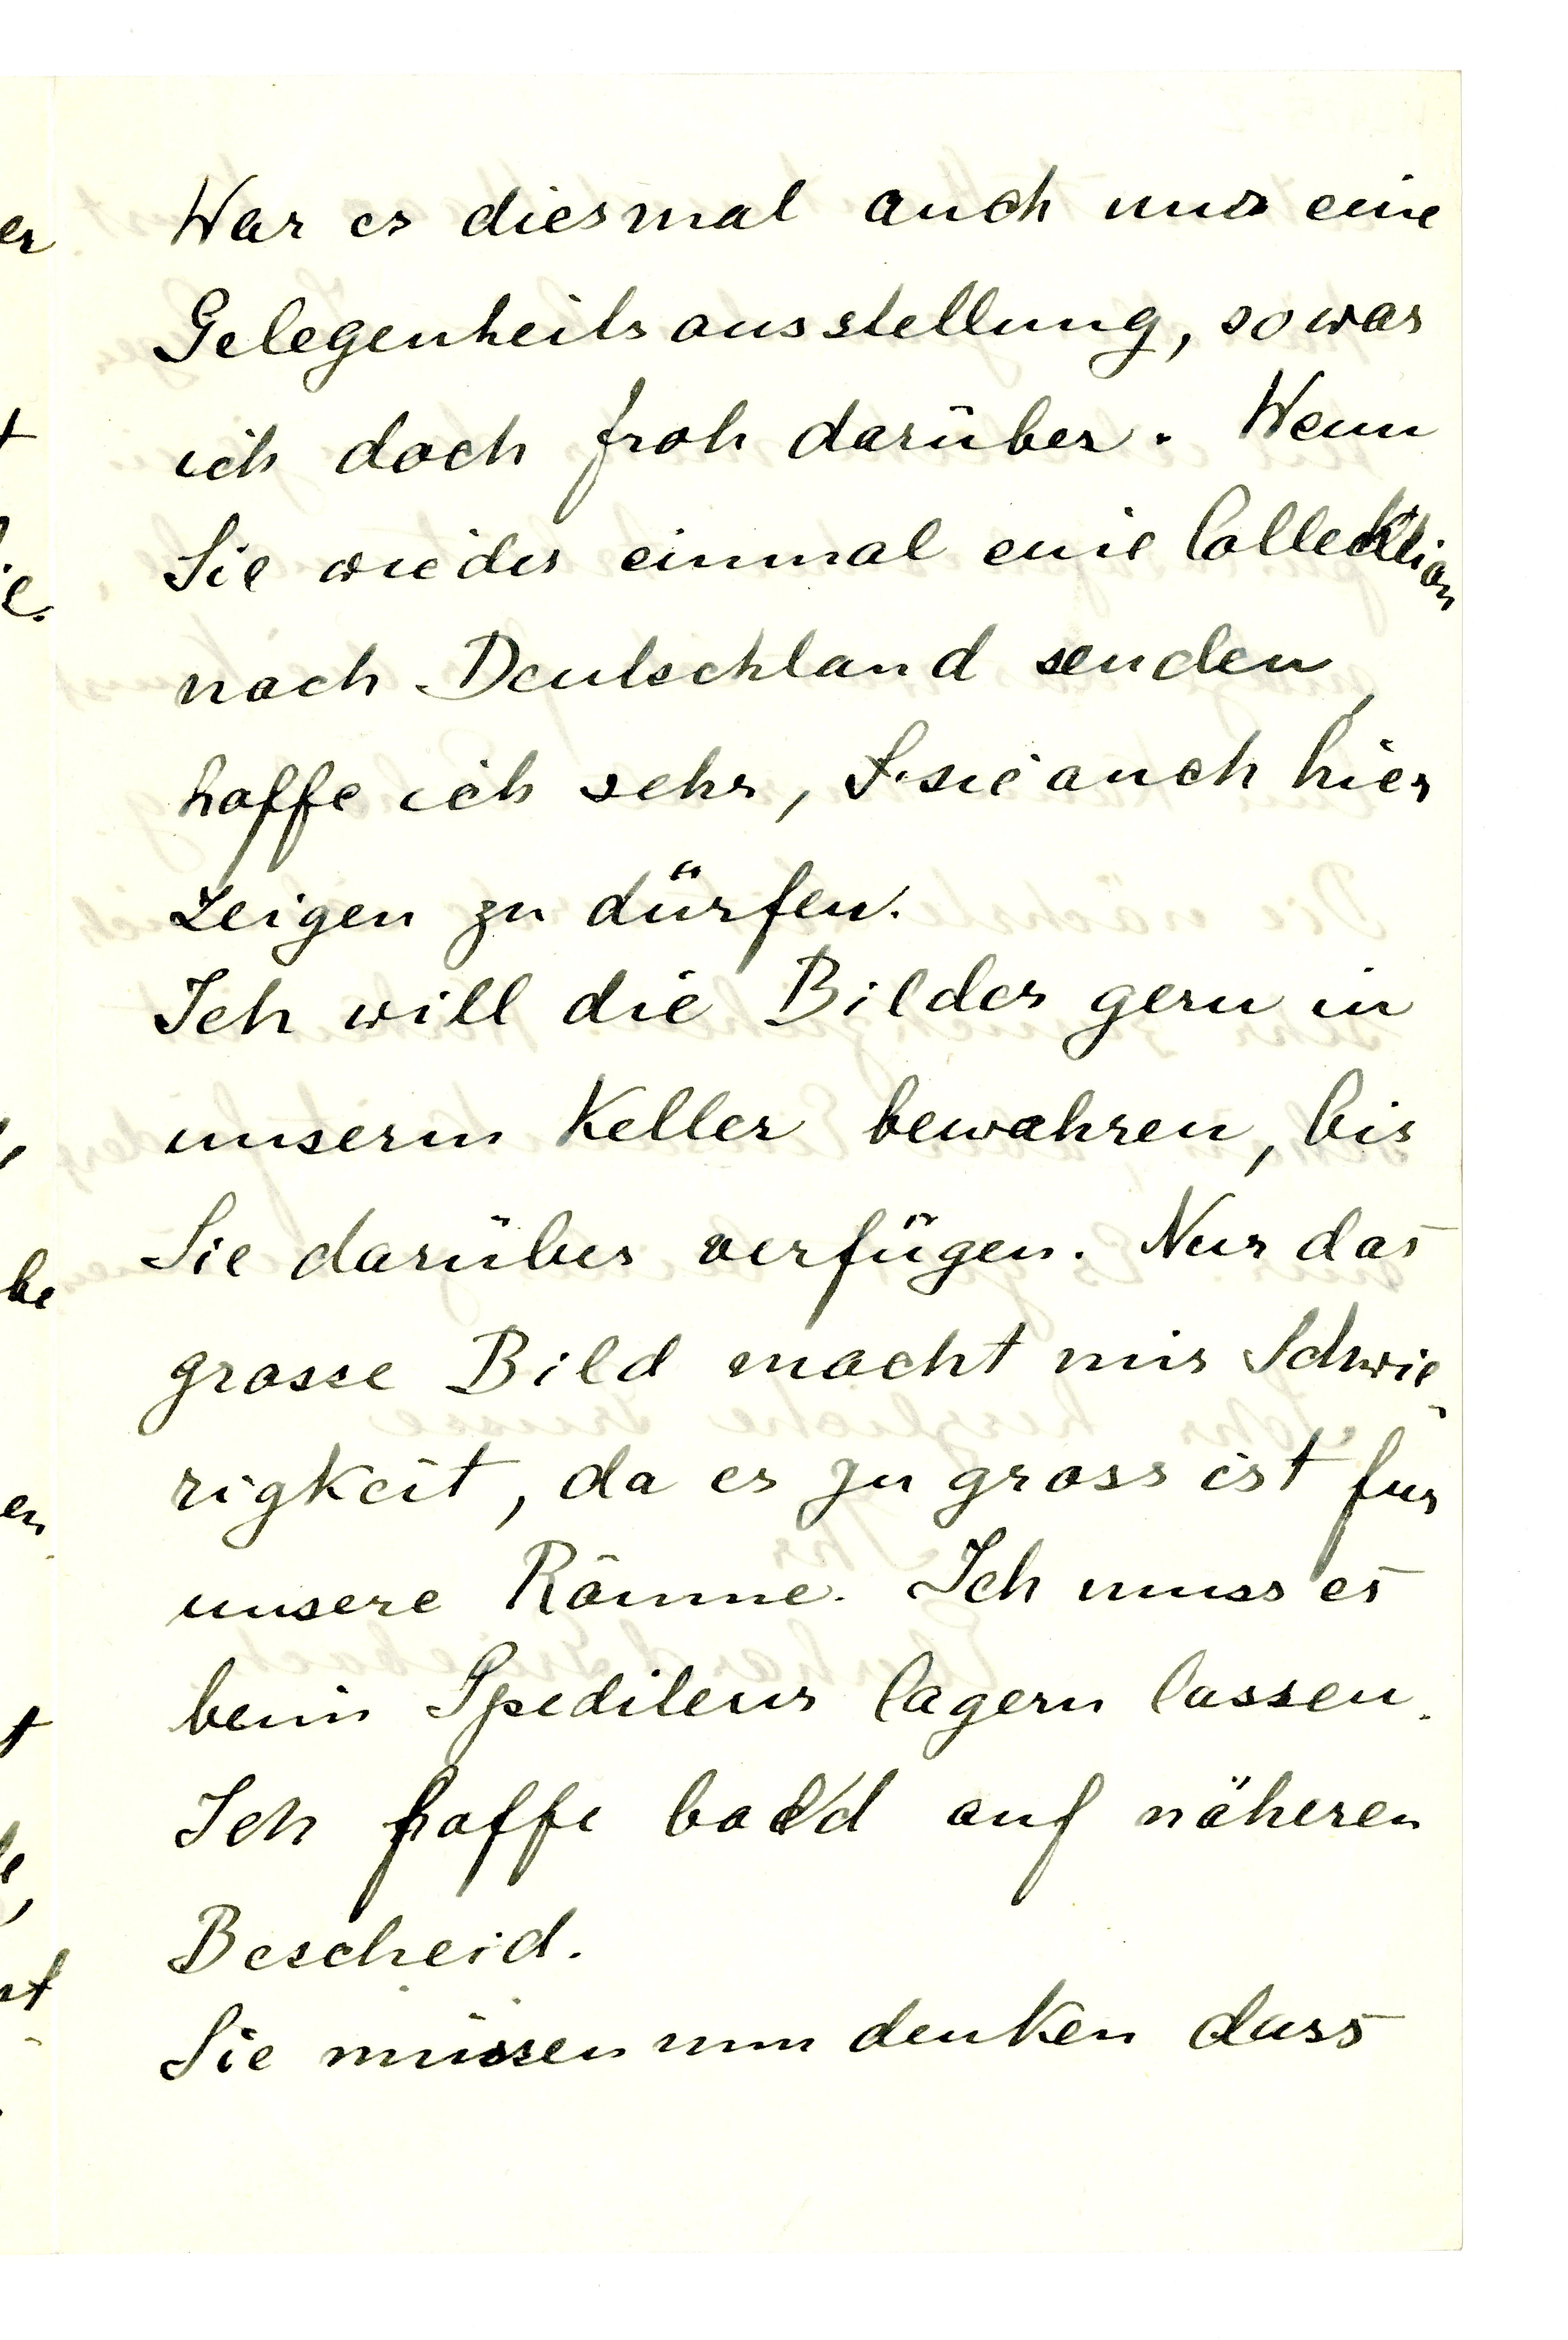 War es diesmal auch nur eine
Gelegenheitsausstellung, so war
ich doch froh darüber. Wenn
Sie wieder einmal eine Collecktion
nach Deutschland senden,
hoffe ich sehr, sie auch hier
zeigen zu dürfen.
Ich will die Bilder gern in
unserm Keller bewahren, bis
Sie darüber verfügen. Nur das
grosse Bild macht mir Schwie-
rigkeit, da es zu gross ist für
unsere Räume. Ich muss es
beim Spediteur lagern lassen.
Ich hoffe bald auf näheren
Bescheid.
Sie müssen nun denken dass